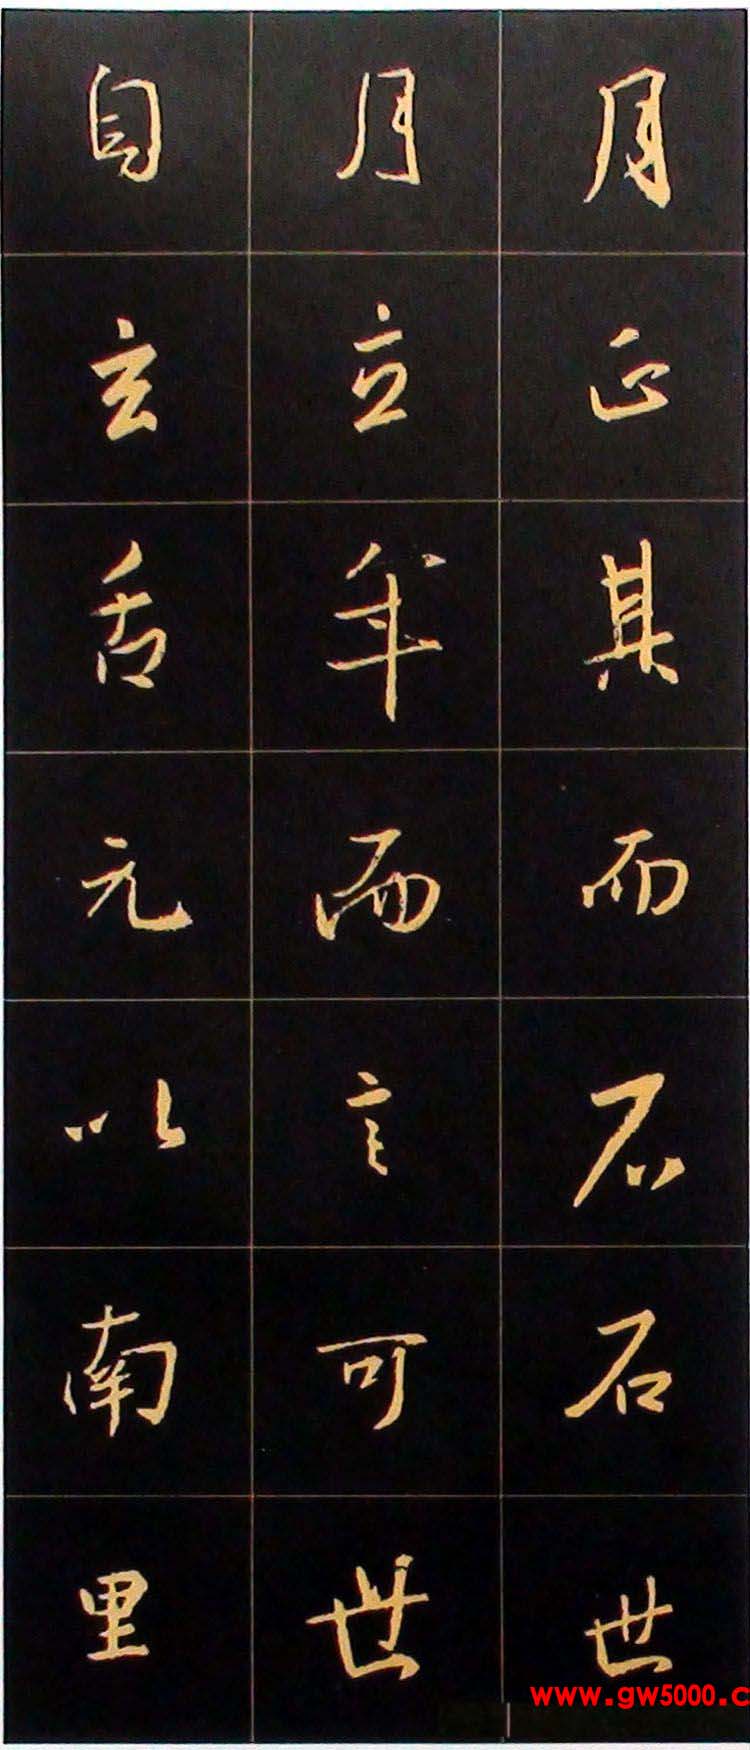 月正其而石石世
月立年而言可世
自玄舌元以南里
www.gw5000.c